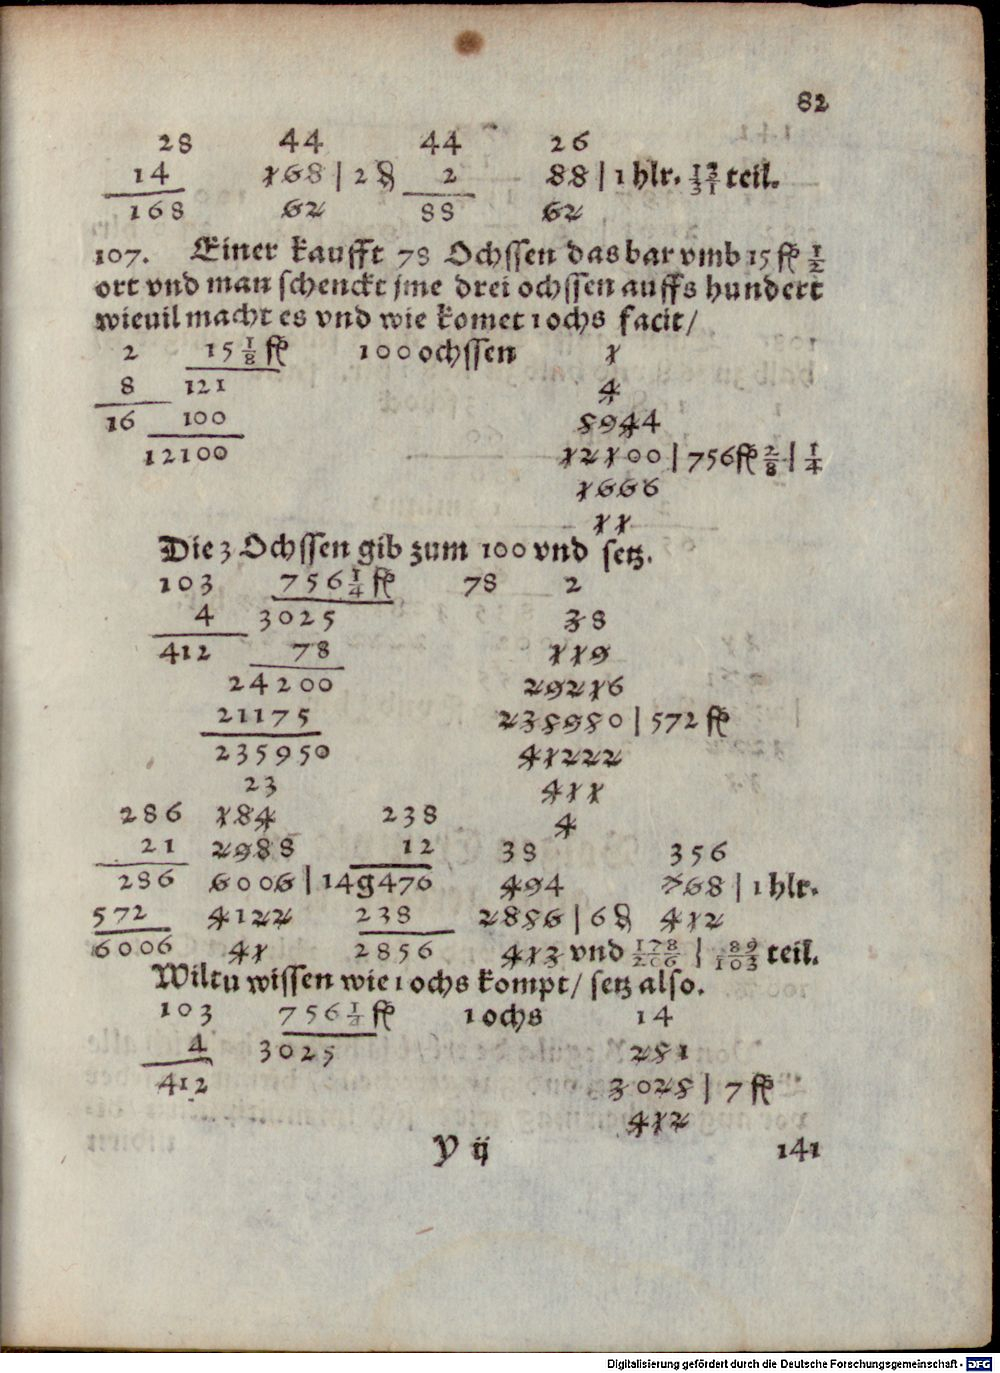 82
28 44 44 26
14 168 | 2 ₰ 2 88 | 1 hlr. 13/31 teil.
168 62 88 62
107. Einer kaufft 78 Ochssen das bar vmb 15 fl 1/2
ort vnd man schenckt jme drei ochssen auffs hundert
wieuil macht es vnd wie komet 1 ochs facit/
2 15 1/8 fl 100 ochssen 1
8 121 4
16 100 8944
12100 12100 | 756 fl 2/8 | 1/4
1666
11
Die 3 Ochssen gib zum 100 vnd setz.
103 756 1/4 fl 78 2
4 3025 38
412 78 119
24200 29216
21175 238980 | 572 fl
235950 41222
23 411
286 184 238 4
21 2988 12 38 356
286 6006 | 149476 494 768 | 1 hlr.
572 4122 238 2886 | 6 ₰ 412
6006 41 2856 413 vnd 178/206 | 89/103 teil.
Wiltu wissen wie 1 ochs kompt/ setz also.
103 756 1/4 fl 1 ochs 14
4 3025 281
412 3028 | 7 fl
412
Y ij 141
Digitalisierung gefördert durch die Deutsche Forschungsgemeinschaft - DFG